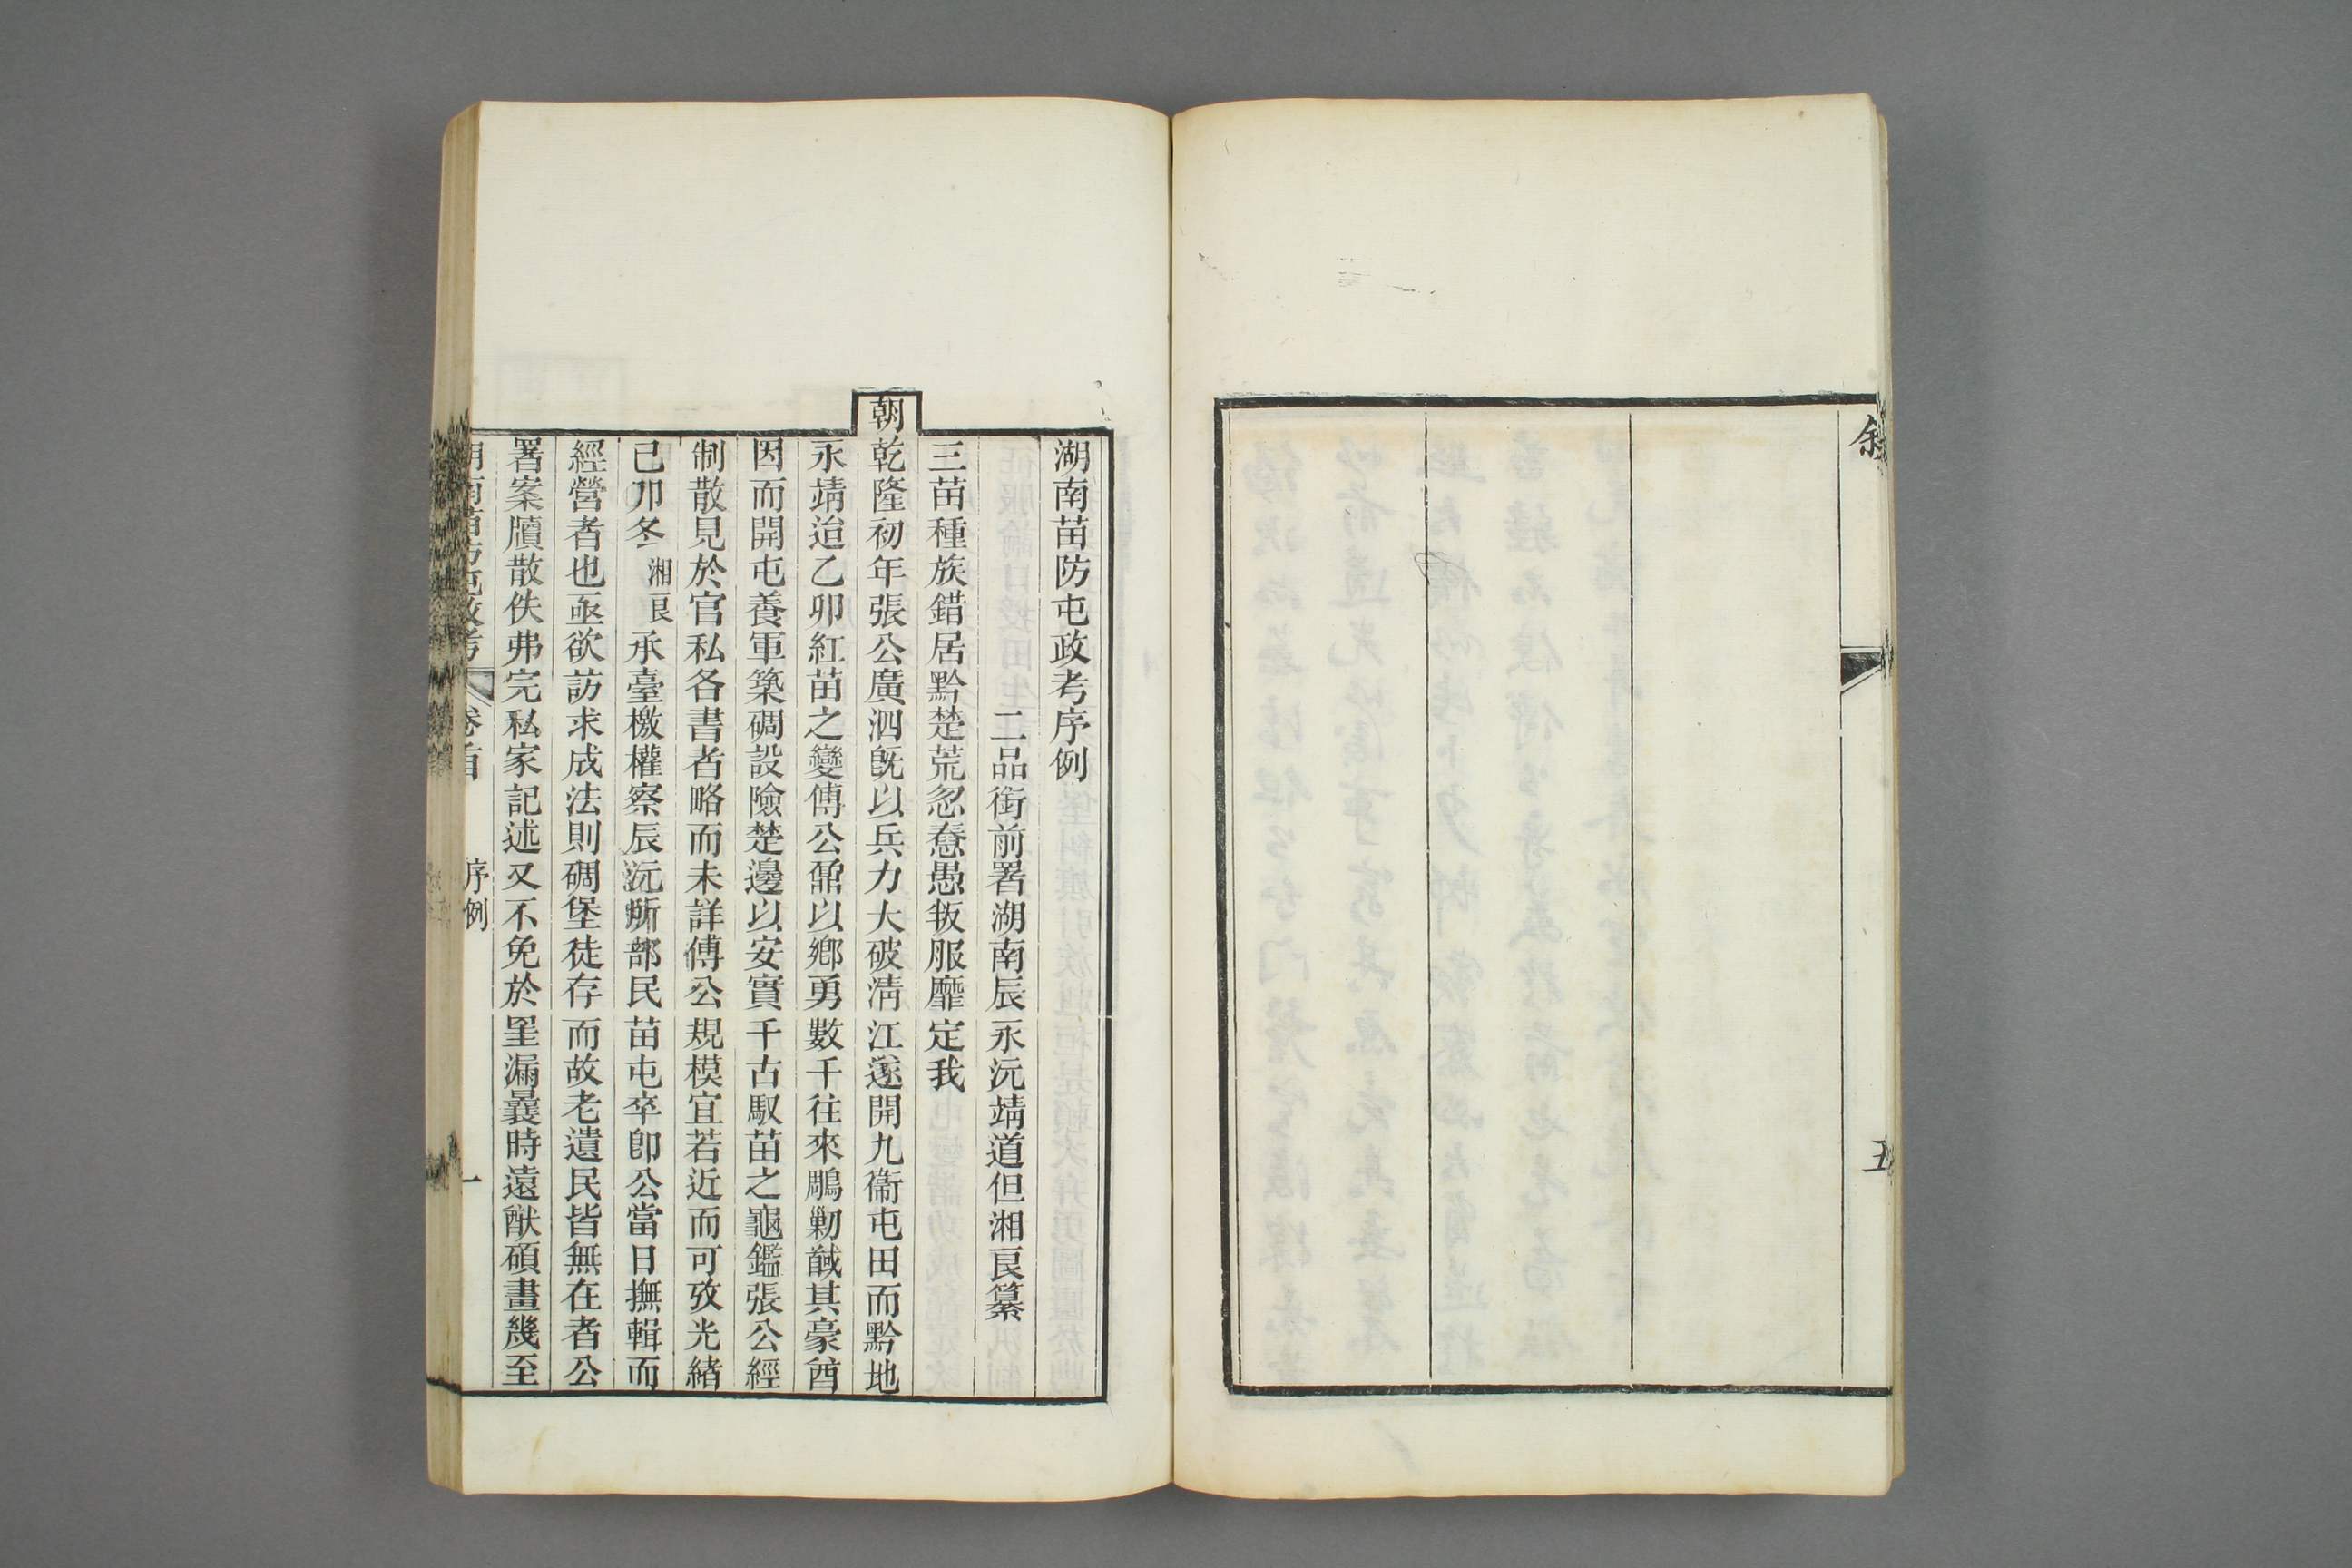 敘
五
湖南苗防屯政考序例
二品銜前署湖南辰永沅靖道但湘良纂
三苗種族錯居黔楚荒忽惷愚叛服靡定我
朝乾隆初年張公廣泗旣以兵力大破淸江遂開九衞屯田而黔地
永靖迨乙卯紅苗之變傅公鼐以鄉勇數千往來鵰勦馘其豪酋
因而開屯養軍築碉設險楚邊以安實千古馭苗之龜鑑張公經
制散見於官私各書者略而未詳傅公規模宜若近而可攷光緖
己卯冬湘良承臺檄權察辰沅所部民苗屯卒卽公當日撫輯而
經營者也亟欲訪求成法則碉堡徒存而故老遺民皆無在者公
署案牘散佚弗完私家記述又不免於罣漏曩時遠猷碩畫幾至
湖南苗防屯政考 卷首 序例 一